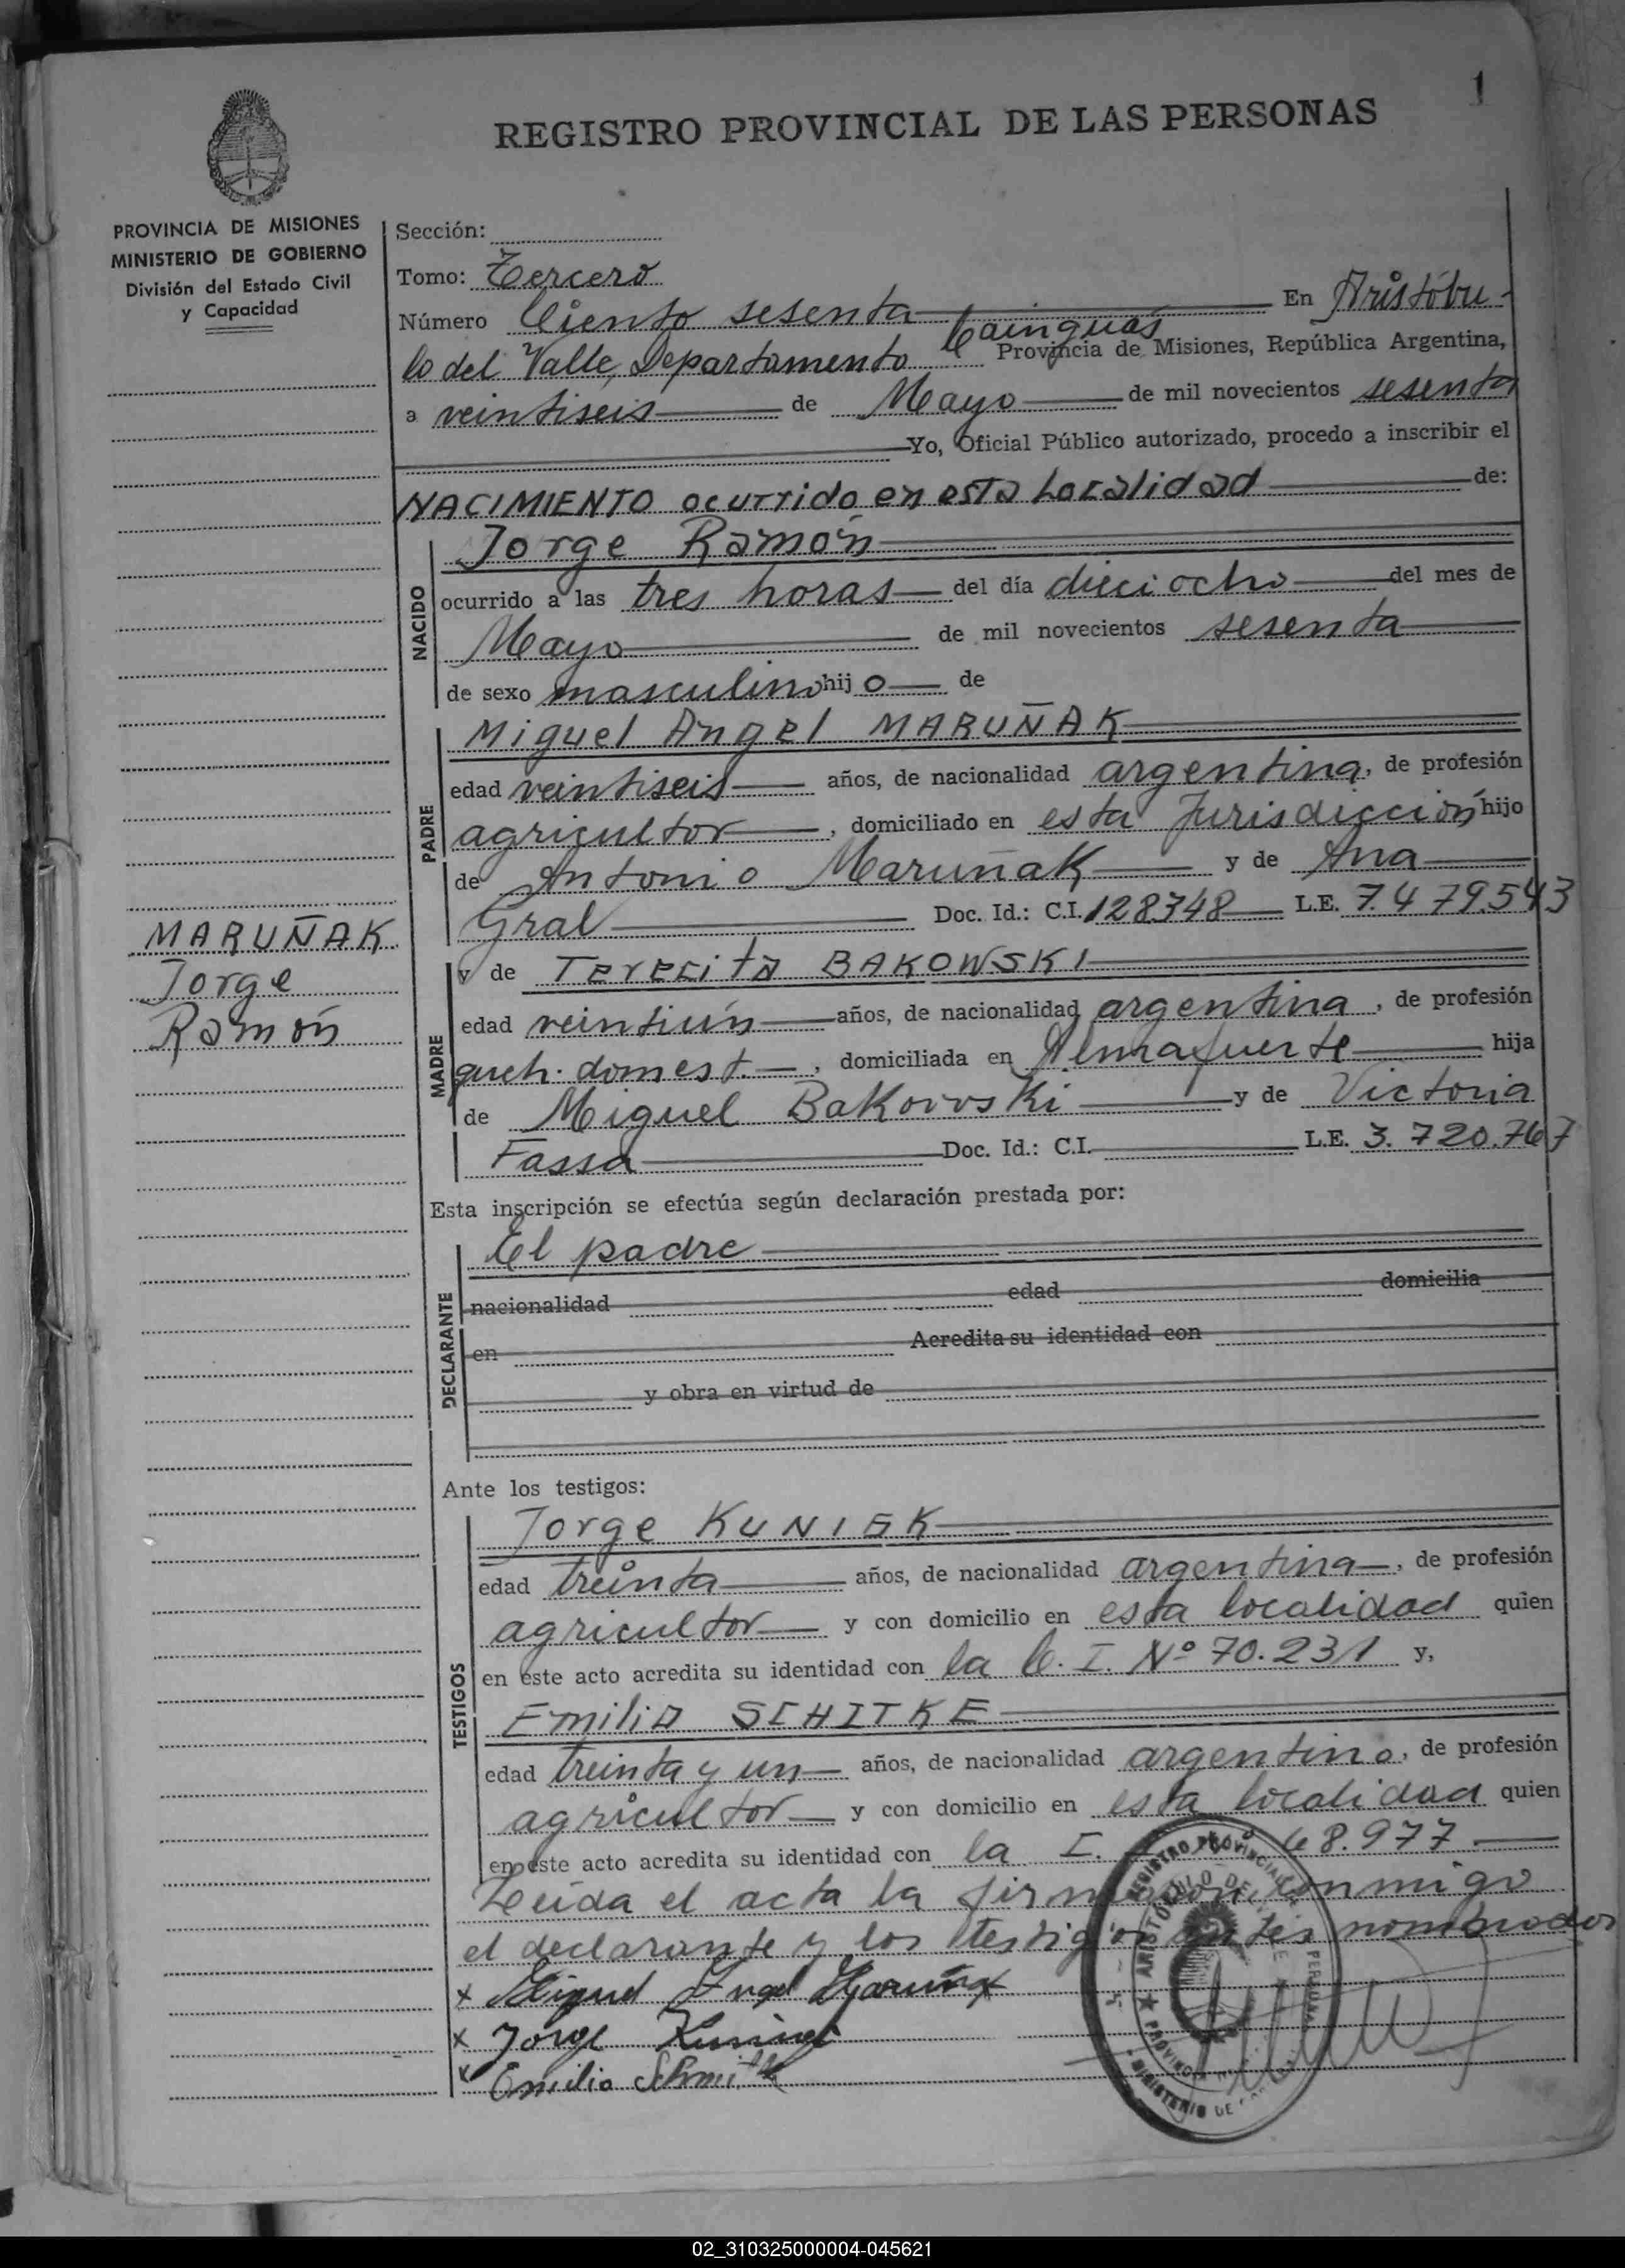 1
REGISTRO PROVINCIAL DE LAS PERSONAS
PROVINCIA DE MISIONES
MINISTERIO DE GOBIERNO
División del Estado Civil
y Capacidad
MARUÑAK
Jorge
Ramón
Sección:
Tomo: Tercero
Número Ciento sesenta En Aristóbu-
lo del Valle, Departamento Cainguás Provincia de Misiones, República Argentina,
a veintiseis de Mayo de mil novecientos sesenta
Yo, Oficial Público autorizado, procedo a inscribir el
NACIMIENTO ocurrido en esta Localidad de:
NACIDO
Jorge Ramón
ocurrido a las tres horas del día dieciocho del mes de
Mayo de mil novecientos sesenta
de sexo masculino hijo de
PADRE
Miguel Angel MARUÑAK
edad veintiseis años, de nacionalidad argentina, de profesión
agricultor, domiciliado en esta Jurisdicción hijo
de Antonio Maruñak y de Ana
Gral Doc. Id.: C.I. 128748 L.E. 7.479.543
MADRE
y de Teresita BAKOWSKI
edad veintiún años, de nacionalidad argentina, de profesión
queh. domest., domiciliada en Almafuerte hija
de Miguel Bakowski y de Victoria
Fassa Doc. Id.: C.I. L.E. 3.720.767
Esta inscripción se efectúa según declaración prestada por:
DECLARANTE
El padre
nacionalidad edad domicilia
en Acredita su identidad con
y obra en virtud de
Ante los testigos:
TESTIGOS
Jorge KUNIAK
edad treinta años, de nacionalidad argentina, de profesión
agricultor y con domicilio en esta localidad quien
en este acto acredita su identidad con la C. I. Nº 70.231 y,
Emilio SCHITKE
edad treinta y un años, de nacionalidad argentino, de profesión
agricultor y con domicilio en esta localidad quien
en este acto acredita su identidad con la I. 68.977
Leída el acta la firmaron conmigo
el declarante y los testigos antes nombrados
x Miguel Angel Maruñak
x Jorge
x Emilio
REGISTRO PROVINCIAL DE PERSONAS
ARISTOBULO DEL VALLE
MINISTERIO DE
02_310325000004-045621